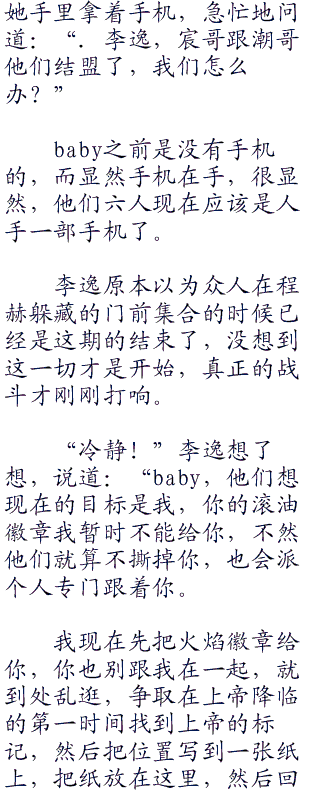 她手里拿着手机，急忙地问
道：“．李逸，宸哥跟潮哥
他们结盟了，我们怎么
办？”
baby之前是没有手机
的，而显然手机在手，很显
然，他们六人现在应该是人
手一部手机了。
李逸原本以为众人在程
赫躲藏的门前集合的时候已
经是这期的结束了，没想到
这一切才是开始，真正的战
斗才刚刚打响。
“冷静！”李逸想了
想，说道：“baby，他们想
现在的目标是我，你的滚油
徽章我暂时不能给你，不然
他们就算不撕掉你，也会派
个人专门跟着你。
我现在先把火焰徽章给
你，你也别跟我在一起，就
到处乱逛，争取在上帝降临
的第一时间找到上帝的标
记，然后把位置写到一张纸
上，把纸放在这里，然后回